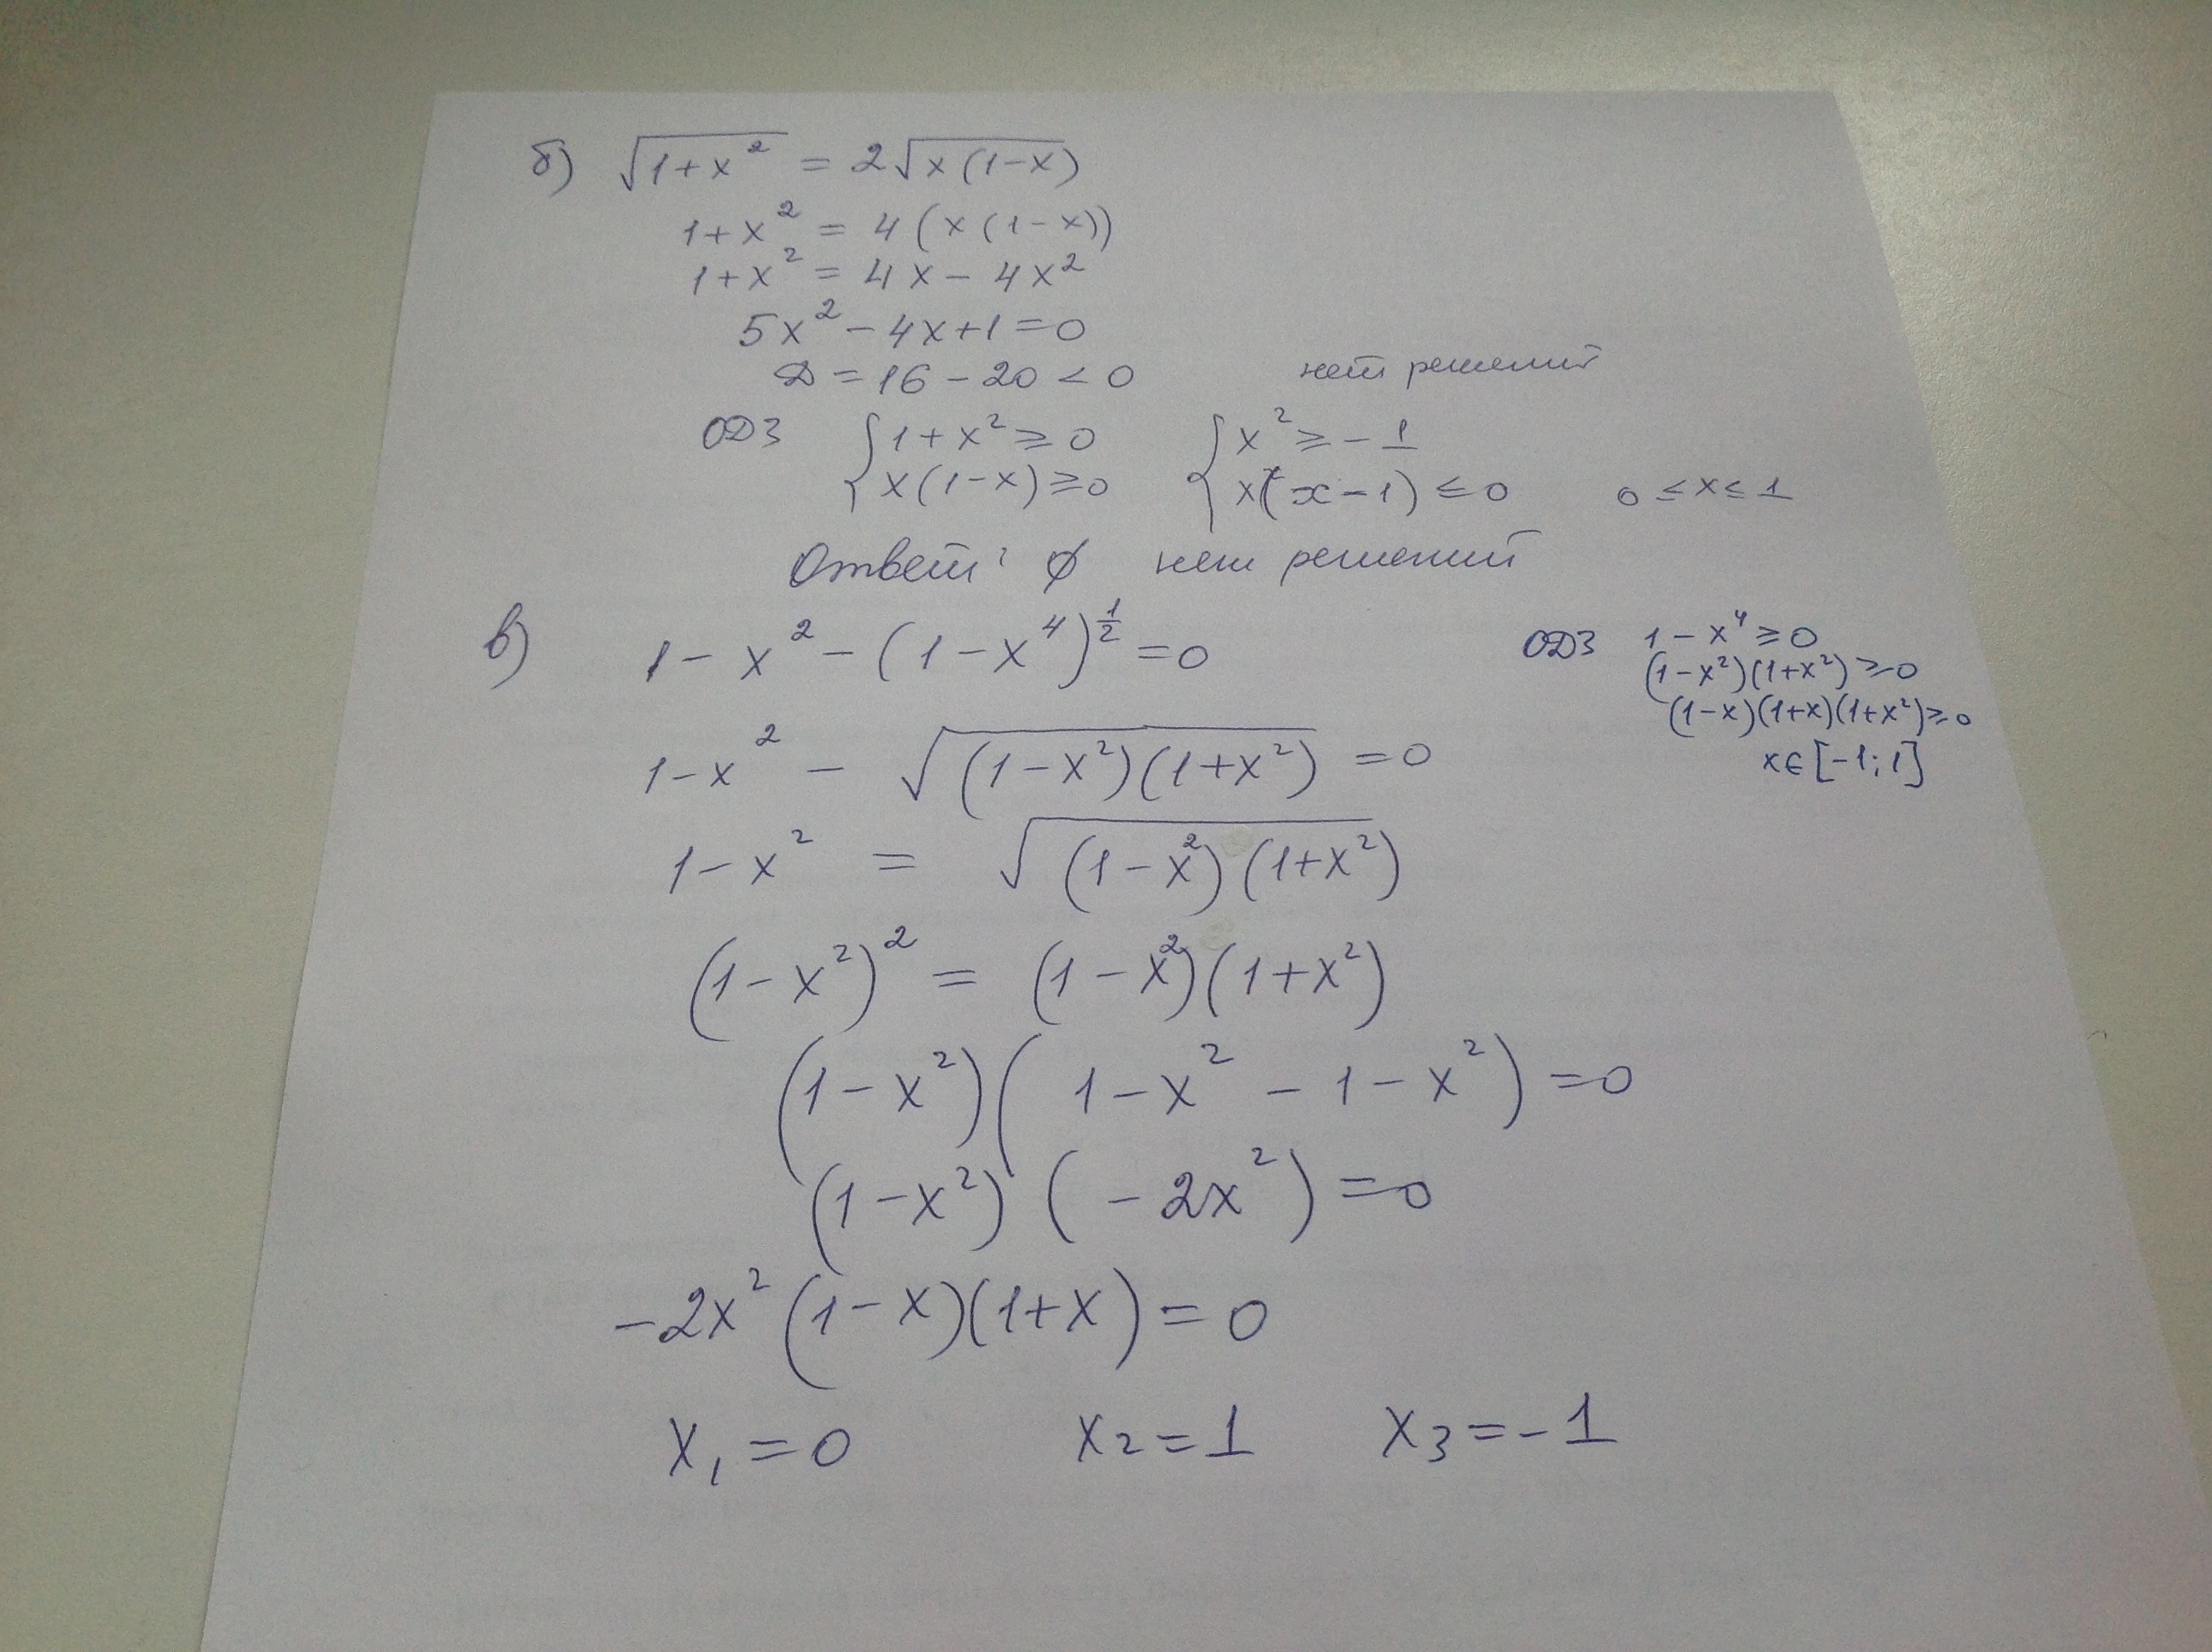 б) √(1+x²) = 2√(x(1-x))
1+x² = 4(x(1-x))
1+x² = 4x - 4x²
5x² - 4x + 1 = 0
D = 16 - 20 < 0 нет решений
ОДЗ { 1+x² ⩾ 0 { x² ⩾ -1
{ x(1-x) ⩾ 0 { x(x-1) ≤ 0 0 ≤ x ≤ 1
Ответ: ∅ нет решений
в) 1 - x² - (1-x⁴)^(1/2) = 0 ОДЗ 1-x⁴ ⩾ 0
(1-x²)(1+x²) ⩾ 0
(1-x)(1+x)(1+x²) ⩾ 0
x∈[-1;1]
1-x² - √((1-x²)(1+x²)) = 0
1-x² = √((1-x²)(1+x²))
(1-x²)² = (1-x²)(1+x²)
(1-x²)(1-x²-1-x²) = 0
(1-x²)(-2x²) = 0
-2x²(1-x)(1+x) = 0
x₁ = 0 x₂ = 1 x₃ = -1